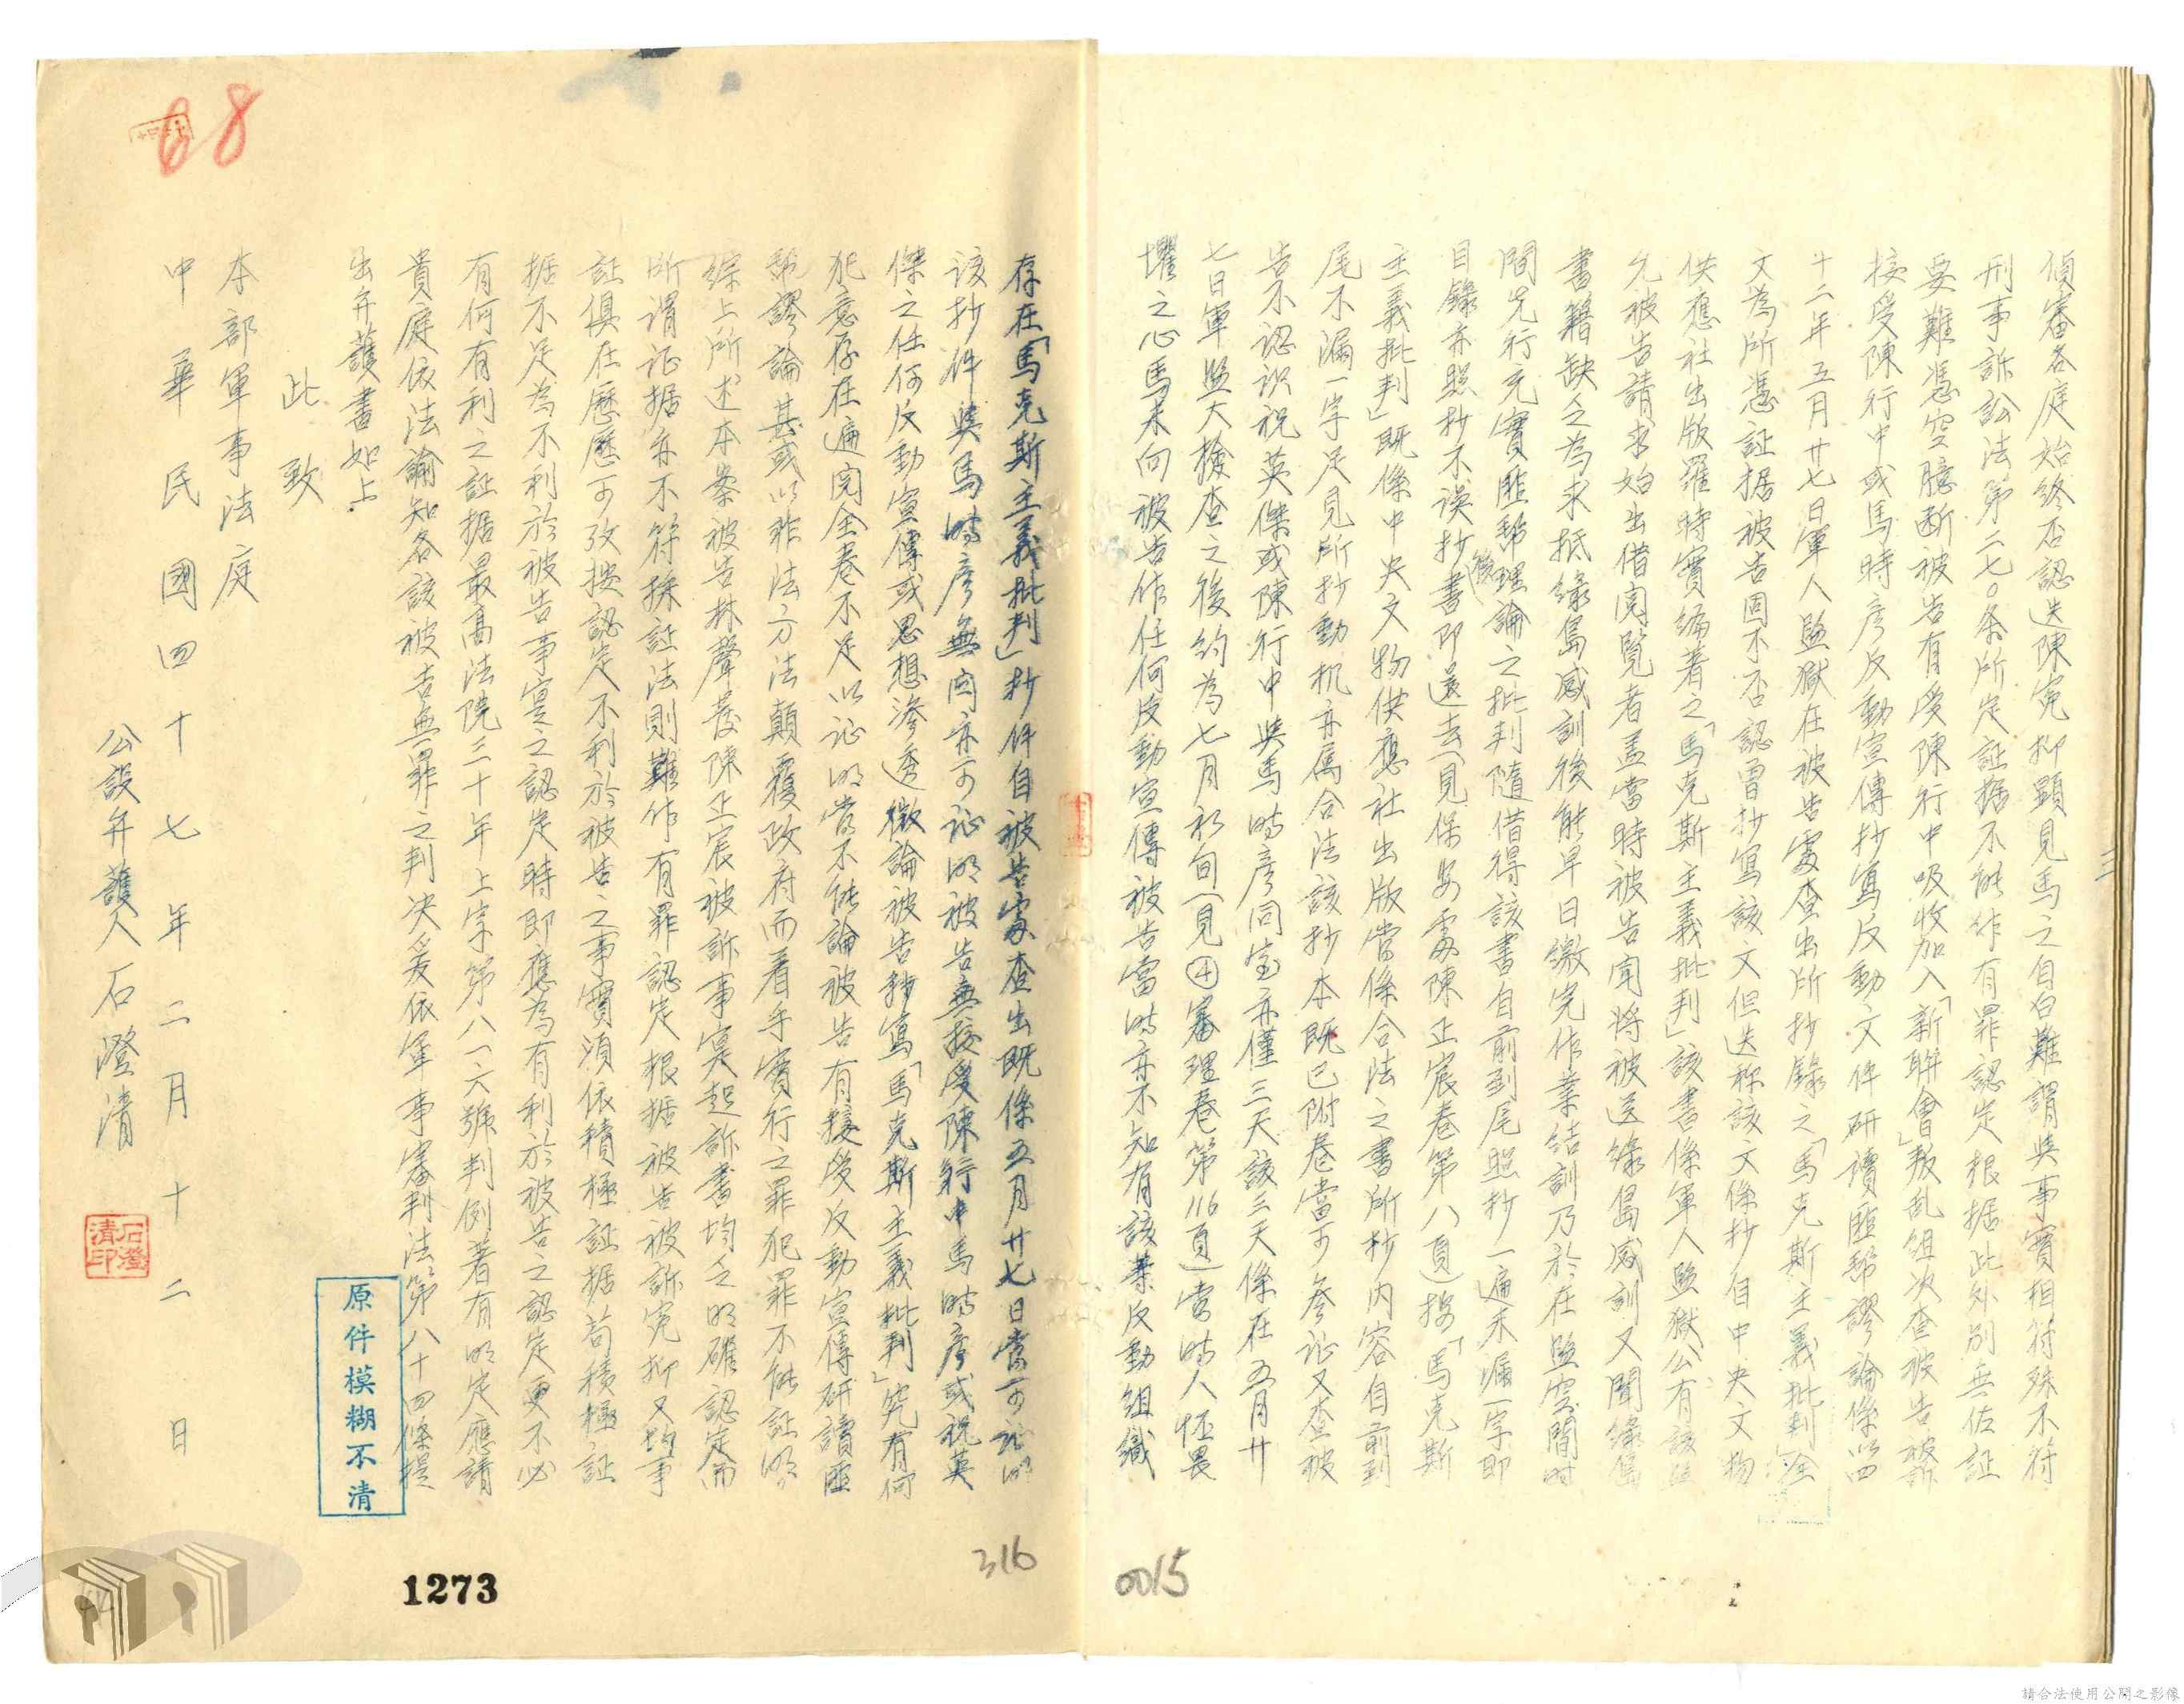 三
偵審各庭始終否認迭陳冤抑顯見馬之自白難謂與事實相符殊不符
刑事訴訟法第二七〇条所定証据不能作有罪認定根据此外別無佐証
要難憑空臆断被告有受陳行中吸收加入「新聯會」叛乱組次查被告被訴
接受陳行中或馬時彥反動宣傳抄寫反動文件研讀匪帮謬論係以四
十二年五月廿七日軍人監獄在被告處查出所抄錄之「馬克斯主義批判」全
文為所憑証据被告固不否認曾抄寫該文但迭称該文係抄自中央文物
供應社出版羅時實編著之「馬克斯主義批判」該書係軍人監獄公有該
允被告請求始出借閱覽者盖當時被告聞将被送綠島感訓又聞綠島
書籍缺乏為求抵綠島感訓後能早日繳完作業結訓乃於在監空閒時
間先行充實匪帮理論之批判隨借得該書自前到尾照抄一遍未漏一字即
目錄亦照抄不误抄後書即還去(見保安處陳正宸卷第八頁)按「馬克斯
主義批判」既係中央文物供應社出版當係合法之書所抄内容自前到
尾不漏一字足見所抄動机亦属合法該抄本既已附卷當可參证又查被
告不認识祝英傑或陳行中與馬時彥同室亦僅三天該三天係在五月廿
七日軍監大檢查之後約為七月初旬(見④審理卷第116頁)當時人怀畏
懼之心馬未向被告作任何反動宣傳被告當時亦不知有該案反動組織
存在「馬克斯主義批判」抄件自被告處查出既係五月廿七日當可证明
該抄件與馬時彥無関亦可证明被告無接受陳行中馬時彥或祝英
傑之任何反動宣傳或思想滲透徵論被告抄寫「馬克斯主義批判」究有何
犯意存在遍閱全卷不足以证明當不能論被告有接受反動宣傳研讀匪
帮謬論甚或以非法方法顛覆政府而着手實行之罪犯罪不能証明
綜上所述本案被告林聲發陳正宸被訴事實起訴書均乏明確認定而
所谓证据亦不符採証法則難作有罪認定根据被告被訴冤抑又均事
証俱在歷歷可攷按認定不利於被告之事實須依積極証据苟積極証
据不足為不利於被告事实之認定時即應為有利於被告之認定更不必
有何有利之証据最高法院三十年上字第八一六號判例著有明定應請
貴庭依法諭知各該被告無罪之判决爰依軍事審判法第八十四條提
出弁護書如上
此致
本部軍事法庭
中華民國四十七年二月十二日
公設弁護人石澄清
石澄清印
原件模糊不清
68
1273
316
0015
請合法使用公開之影像